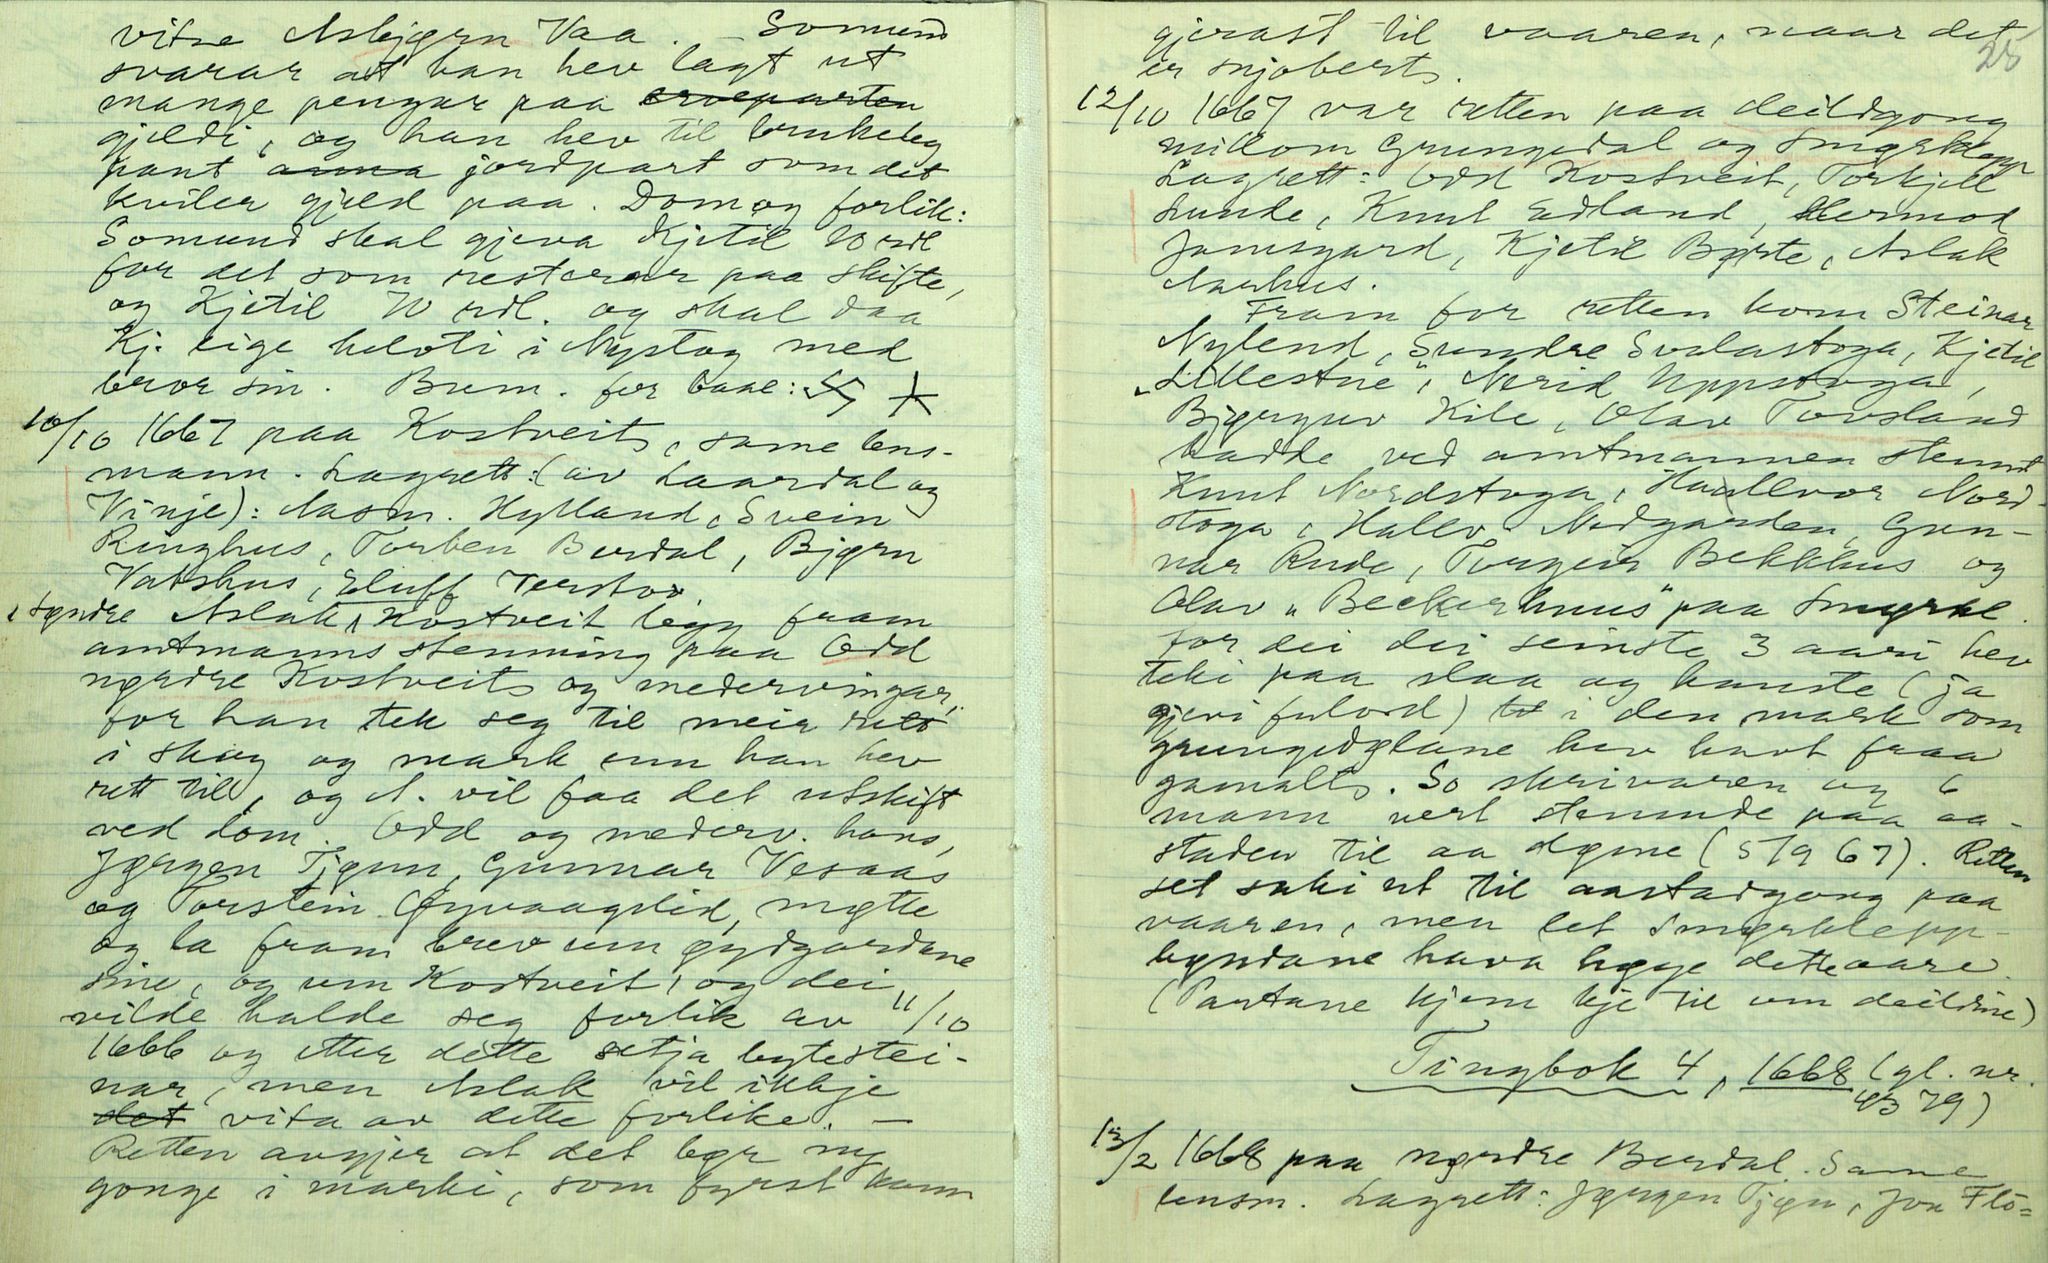 vitne Asbjørn Vaa. – Somund
svarar at han hev lagt ut
mange pengar paa erveparten
gjeldi, og han hev til brukeleg
pant anna jordpart som det
kviler gjeld paa. Dom og forlik:
Somund skal gjeva Kjetil 10 rdl
for det som resterar paa skifte,
og Kjetil 70 rdl. og skal daa
Kj. eige helvti i Nystog med
bror sin. Bum. for baae:
10/10 1667 paa Kostveit, same lens-
mann. Lagrett: (av Laardal og
Vinje): Aasm. Hylland, Svein
Ringhus, Torben Burdal, Bjørn
Vatshus, Eluff
Aslak, søndre Kostveit legg fram
amtmanns stemning paa Odd
nørdre Kostveit og medervingar,
for han tek seg til meir rett
i skog og mark enn han hev
rett til, og A. vil faa det utskift
ved dom. Odd og mederv. hans,
Jørgen Tjønn, Gunnar Vesaas
og Torstein Øyvaagslid, møtte
og la fram brev um øydgardane
sine, og um Kostveit, og dei
vilde halde seg forlik av 11/10
1666 og etter dette setja bytestei-
nar, men Aslak vil ikkje
det vita av dette forlike. –
Retten avgjer at det bør ny
gonge i marki, som fyrst kann
25
gjerast til vaaren, naar det
er snjobert.
12/10 1667 var retten paa deildgong
millom Grungedal og Smørklepp
Lagrett: Odd Kostveit, Torkjell
Lunde, Knut Edland, Hermod
Jamsgard, Kjetil Børte, Aslak
Aarhus.
Fram for retten kom Steinar
Nylend, Sundre Svalastoga, Kjetil
„Lillestue", Uppstoga,
Bjørguv Kile, Olav Torsland
hadde ved amtmannen stemnt
Knut Nordstoga, Hallvor Nord-
stoga, Hallv. Nedgarden, Gun-
nar Rude, Torgeir Bekkhus og
Olav „Beckerhuus" paa Smørkl.
for dei dei seinste 3 aari hev
teki paa slaa og hauste (ja
gjevi fulord) til i den mark som
grungedølane hev havt fraa
gamalt. So skrivaren og 6
mann vert stemnde paa aa-
staden til aa døme (5/9 67). Retten
set saki ut til aastadgong paa
vaaren, men let Smørklepp-
bygdane hava høye dette aare.
(Partane kjem kje til um deildine)
Tingbok 4, 1668 (gl. nr.
43 79)
13/2 1668 paa nørdre Burdal. Same
lensm. Lagrett: Jørgen Tjøn, Jon Flo=